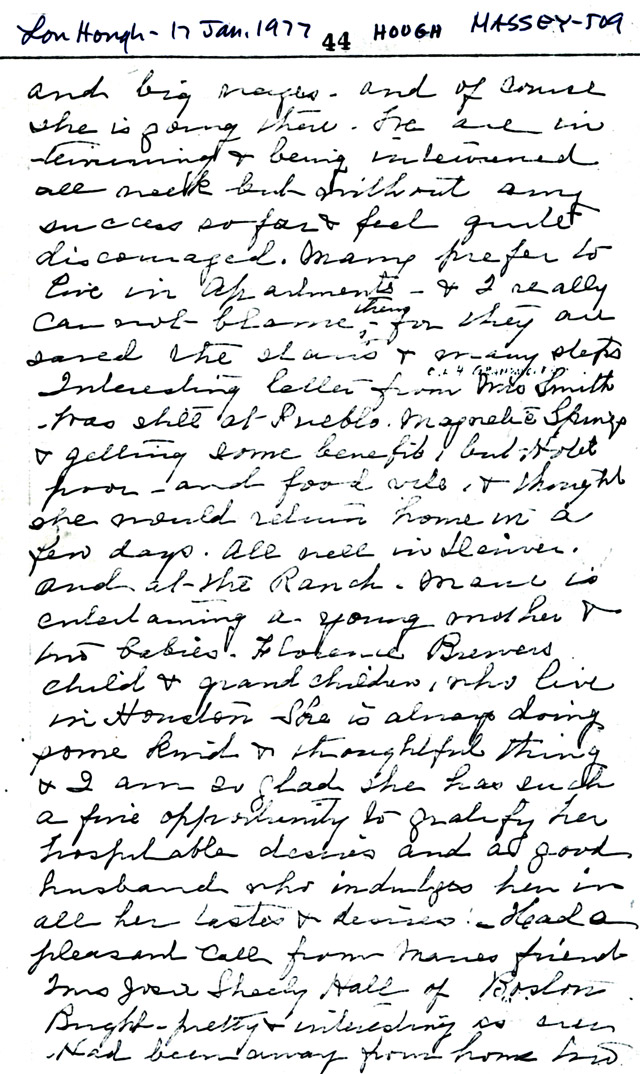 Lon Hough - 17 Jan. 1977 44 HOUGH MASSEY-509
and big wages - and of course
she is going there. We are in
terviewing & being interviewed
all week but without any
success so far & feel quite
discouraged. Many prefer to
live in Apartments - & I really
can not blame them - for they are
saved the stairs & many steps
Interesting letter from Mrs Smith
was still at Pueblo. Magnetic Springs
& getting some benefit, but Hotel
poor - and food vile, & thought
she would return home in a
few days. All well in Denver.
and at the Ranch. Marie is
entertaining a young mother &
two babies. Florence Brewers
child & grandchildren, who live
in Houston - She is always doing
some kind & thoughtful thing
& I am so glad she has such
a fine opportunity to gratify her
hospitable desires and a good
husband who indulges her in
all her tastes & desires! - Had a
pleasant call from Maries friend
Mrs Josie Sheely Hall of Boston
Bright - pretty & interesting as ever
Had been away from home two